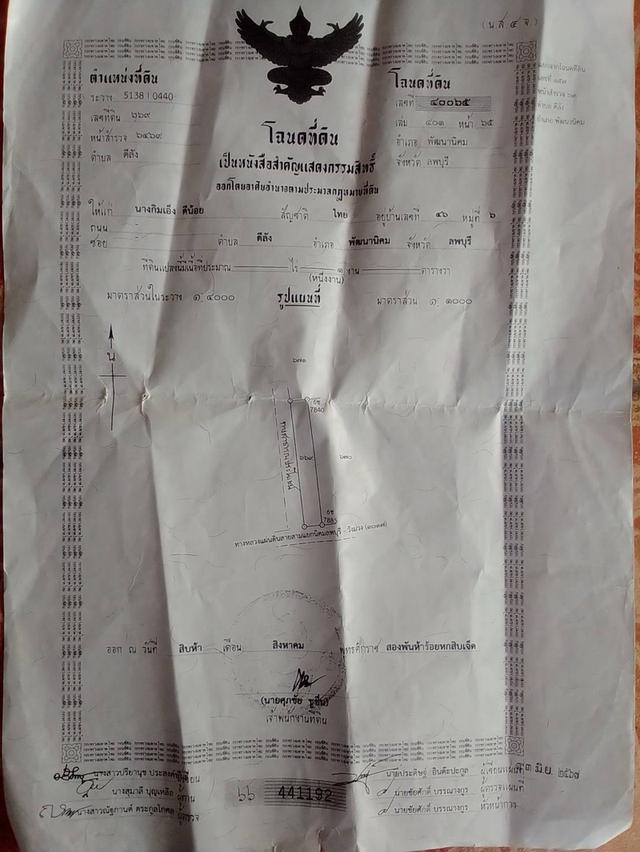 (น ส ๔ จ)
ตำแหน่งที่ดิน
ระวาง 5138 I 0440
เลขที่ดิน ๖๖๙
หน้าสำรวจ ๖๕๖๙
ตำบล ดีลัง
โฉนดที่ดิน
เลขที่ ๔๐๐๖๕
เล่ม ๔๐๑ หน้า ๖๕
อำเภอ พัฒนานิคม
จังหวัด ลพบุรี
โฉนดที่ดิน
เป็นหนังสือสำคัญแสดงกรรมสิทธิ์
ออกโดยอาศัยอำนาจตามประมวลกฎหมายที่ดิน
ให้แก่ นางกิมเอ็ง ดีน้อย สัญชาติ ไทย อยู่บ้านเลขที่ ๔๖ หมู่ที่ ๖
ถนน
ซอย ตำบล ดีลัง อำเภอ พัฒนานิคม จังหวัด ลพบุรี
ที่ดินแปลงนี้มีเนื้อที่ประมาณ ไร่ ๑ งาน ตารางวา
(หนึ่งงาน)
มาตราส่วนในระวาง ๑:๔๐๐๐ รูปแผนที่ มาตราส่วน ๑:๑๐๐๐
น
๖๗๑
7840
๖๖๙
๖๗๐
ทางสาธารณประโยชน์
ทางหลวงแผ่นดินสายสามแยกนิคมลพบุรี - วังม่วง
ออก ณ วันที่ สิบห้า เดือน สิงหาคม พุทธศักราช สองพันห้าร้อยหกสิบเจ็ด
(นายศุภชัย ชูชื่น)
เจ้าพนักงานที่ดิน
นางสาวปรียานุช
นางสุมาลี บุญเหลือ
นางสาวณัฐกานต์ ตระกูลโกศล ผู้ตรวจ
๖๖ 441192
นายประดิษฐ์ อินต๊ะปะกูล
นายชัยศักดิ์ บรรณางกูร ผู้ตรวจแผนที่
นายชัยศักดิ์ บรรณางกูร หัวหน้า
๓ มิ.ย. ๒๕๖๗